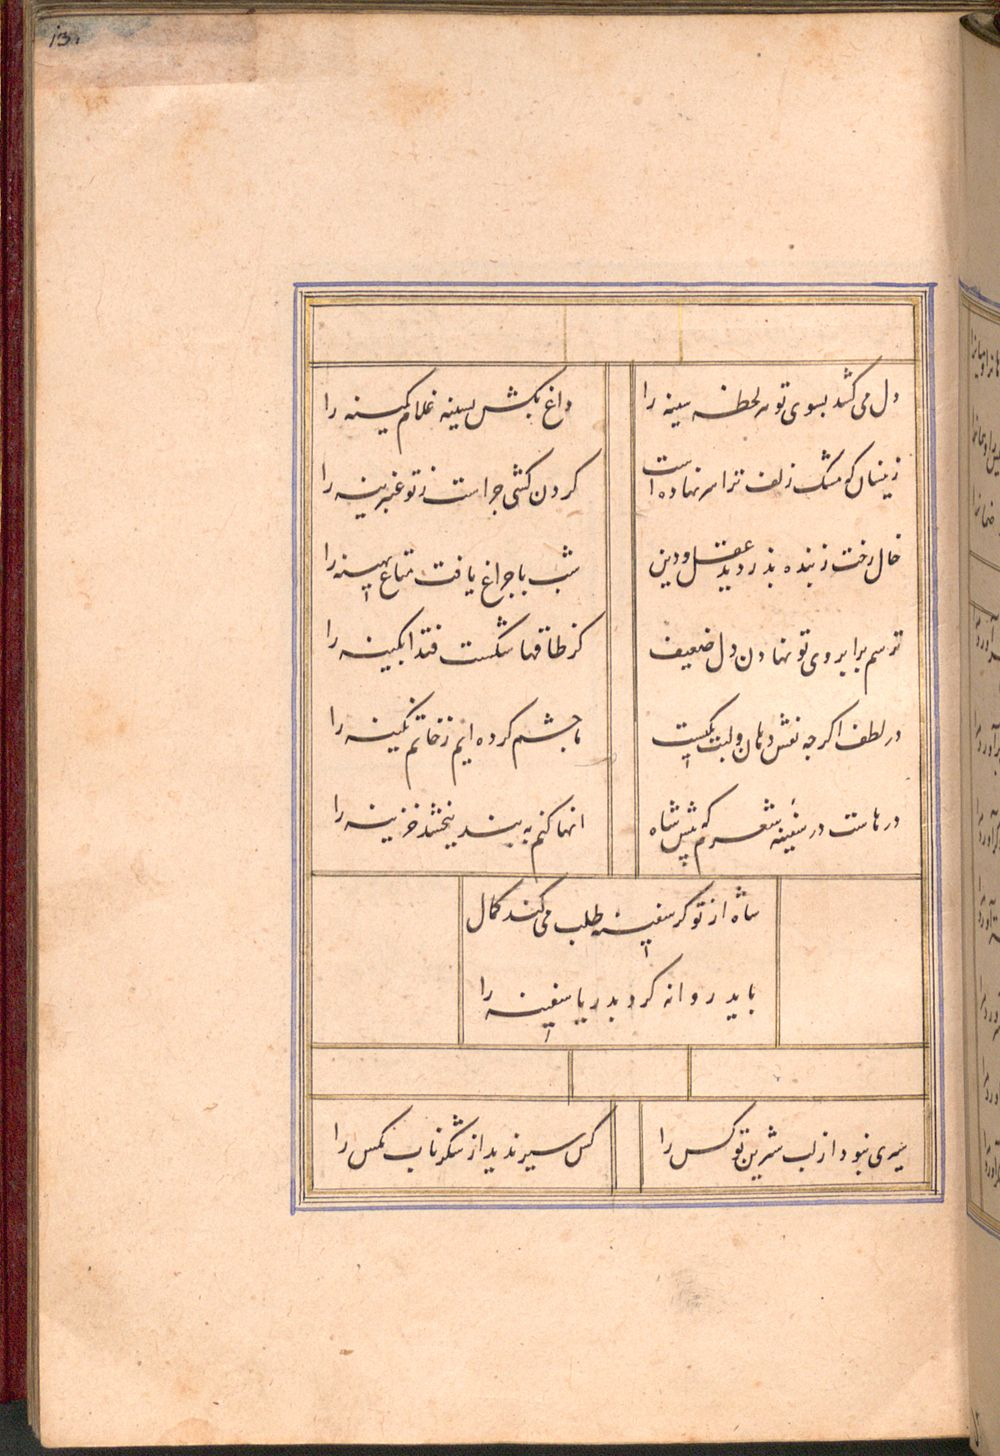 13.
دل می کشد بسوی تو هر لحظه سینه را
داغی بکش بسینه غلام کمینه را
زینسان که مشک زلف ترا سر نهاده است
کردن کشی چراست ز تو عنبرینه را
خال رخت ز بنده بدزدید عقل و دین
شب با چراغ یافت متاع بهینه را
ترسم بر ابروی تو نهادن دل ضعیف
کز طاقها شکست فتد ابکینه را
در لطف اکر چه نقش دهان و لبت یکیست
ما چشم کرده ایم ز خاتم نکینه را
درهاست در سفینه شعرم که پیش شاه
انها کنم به بیند ببخشد خزینه را
شاه از تو کر سفینه طلب می کند کمال
باید روانه کرد بدریا سفینه را
سیری نبود از لب شیرین تو کس را
کس سیر ندید از شکر ناب مکس را